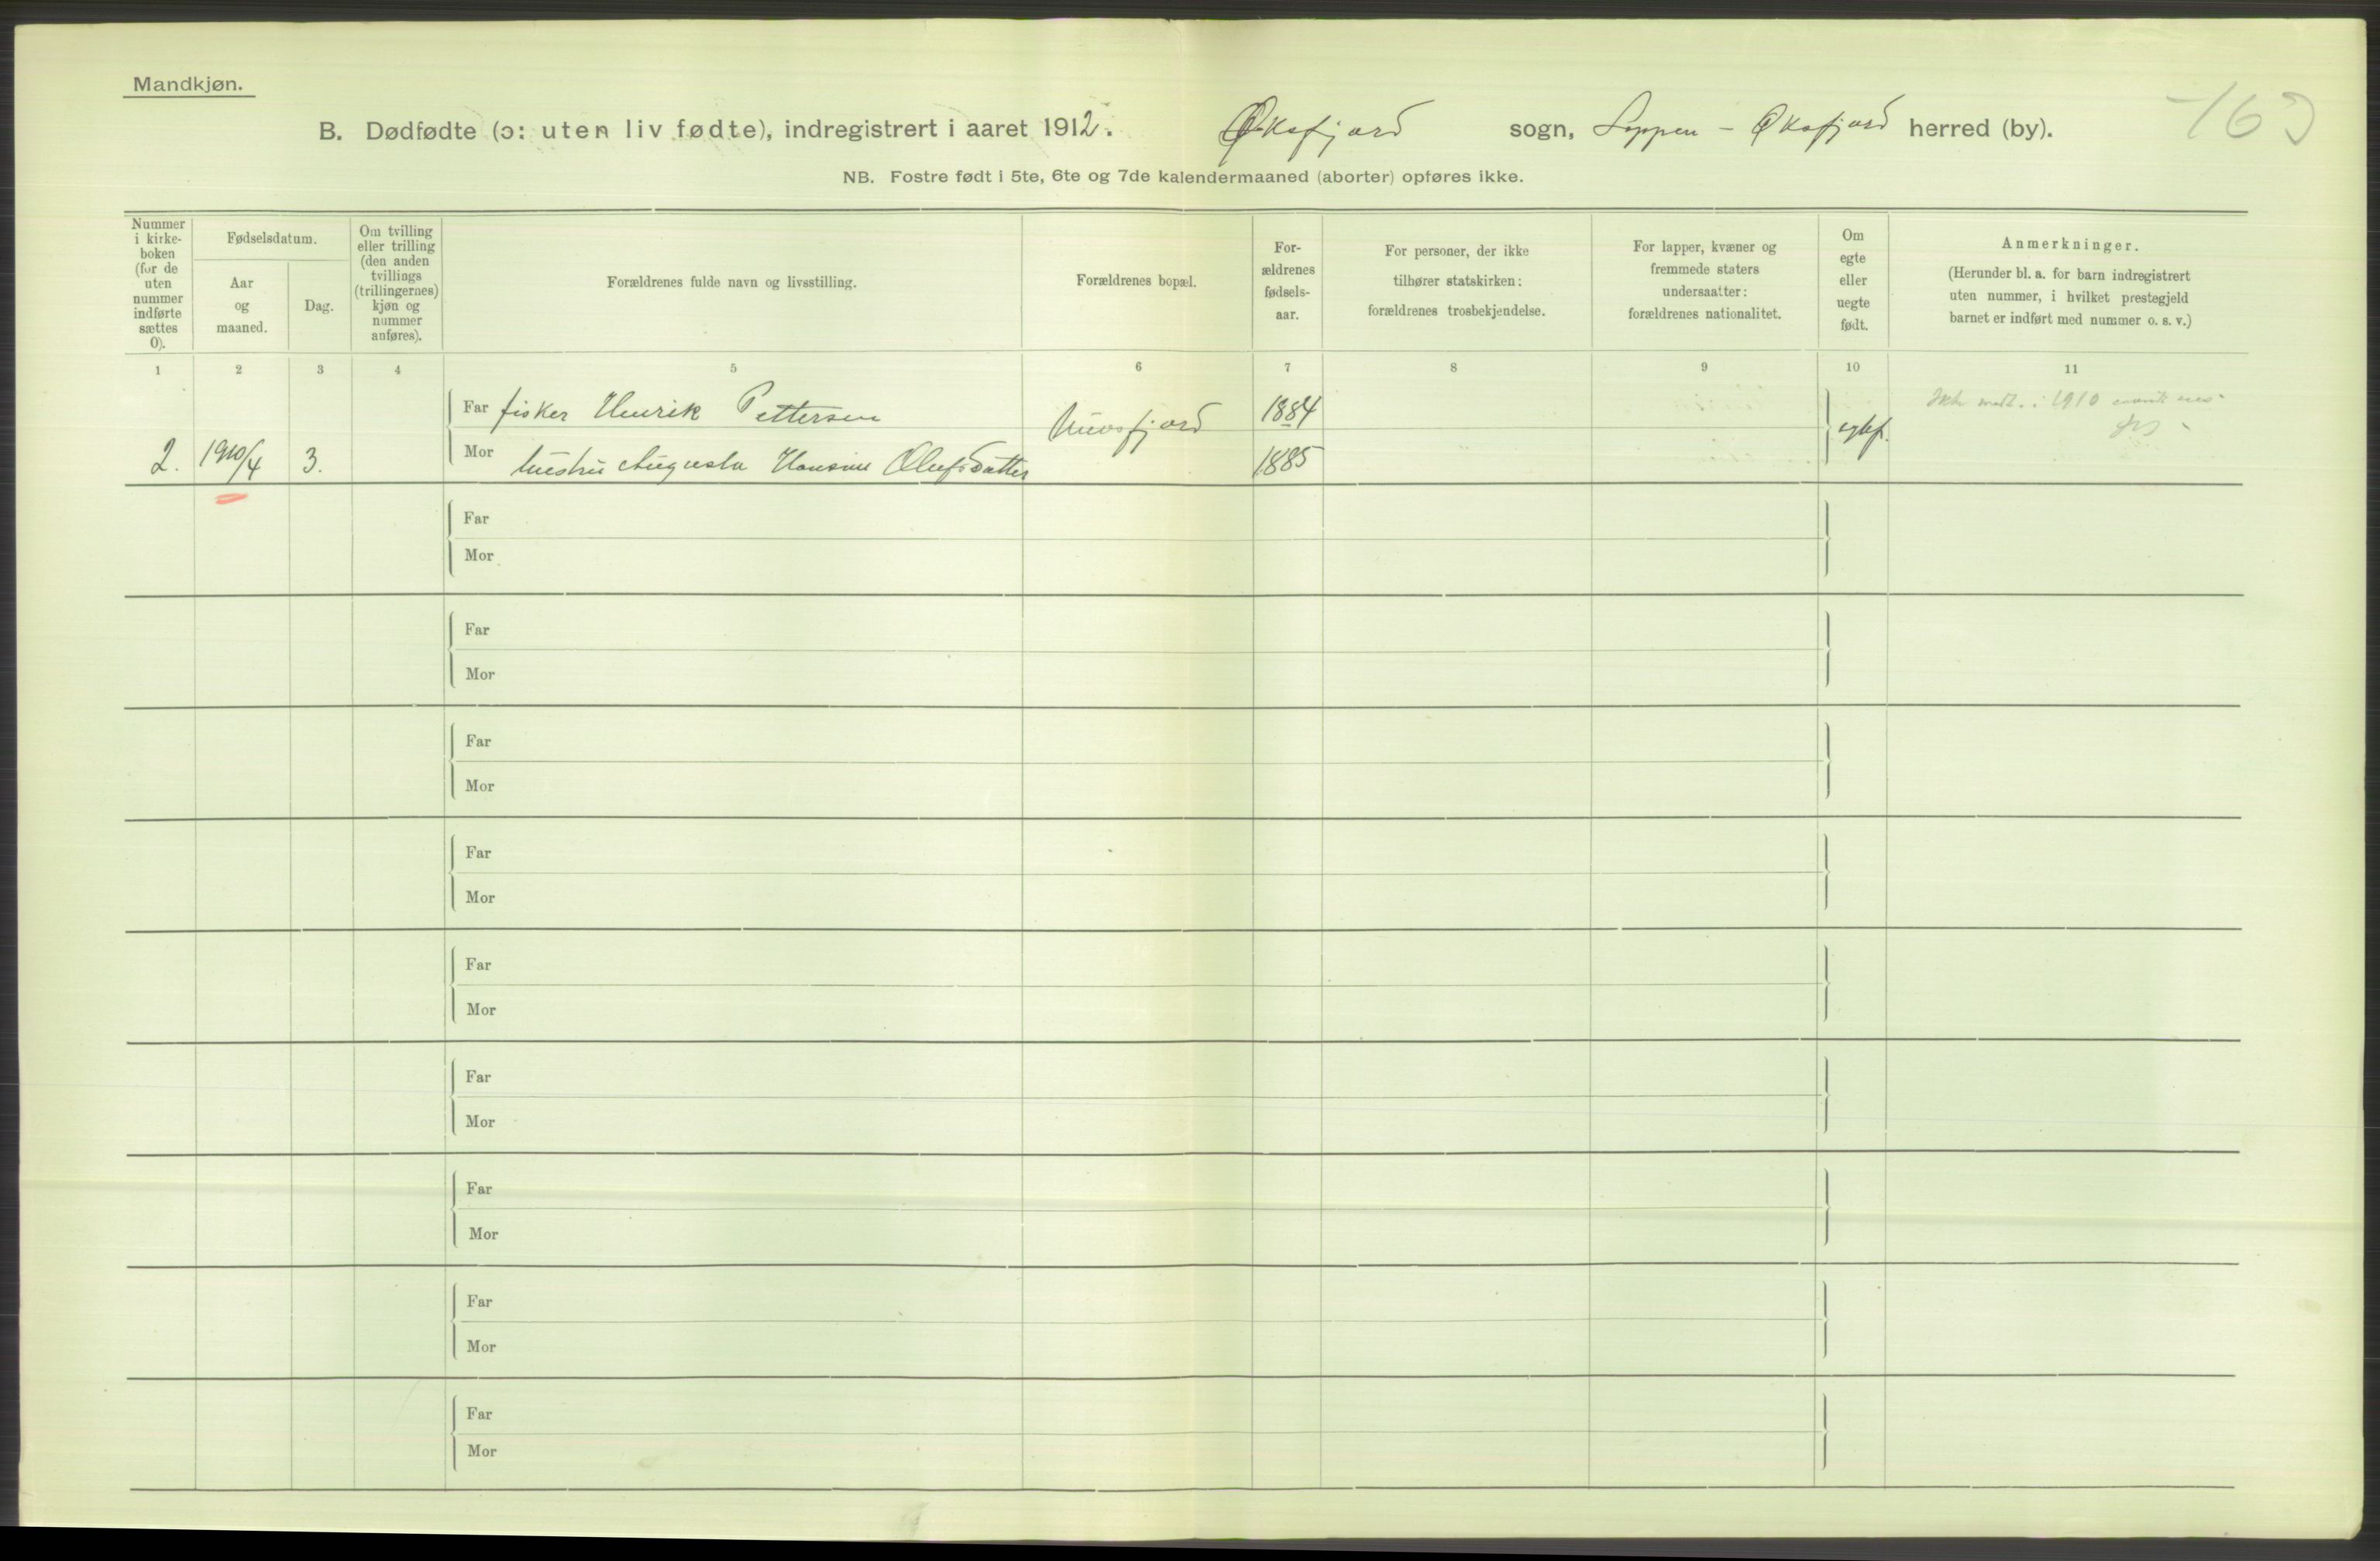 Mandkjøn.
B. Dødfødte (ɔ: uten liv fødte), indregistrert i aaret 1912. Øksfjord sogn, Loppen - Øksfjord herred (by).
163
NB. Fostre født i 5te, 6te og 7de kalendermaaned (aborter) opføres ikke.
Nummer i kirke- boken (for de uten nummer indførte sættes 0).
Fødselsdatum.
Aar og maaned.
Dag.
Om tvilling eller trilling (den anden tvillings (trillingernes) kjøn og nummer anføres).
Forældrenes fulde navn og livsstilling.
Forældrenes bopæl.
For- ældrenes fødsels- aar.
For personer, der ikke tilhører statskirken: forældrenes trosbekjendelse.
For lapper, kvæner og fremmede staters undersaatter: forældrenes nationalitet.
Om egte eller uegte født.
Anmerkninger.
(Herunder bl. a. for barn indregistrert uten nummer, i hvilket prestegjeld barnet er indført med nummer o. s. v.)
1 2 3 4 5 6 7 8 9 10 11
Far fisker Henrik Pettersen 1884
2. 1910/4 3. Mor hustru Augusta Hansine Olufsdatter 1885
Far
Mor
Far
Mor
Far
Mor
Far
Mor
Far
Mor
Far
Mor
Far
Mor
Far
Mor
Far
Mor